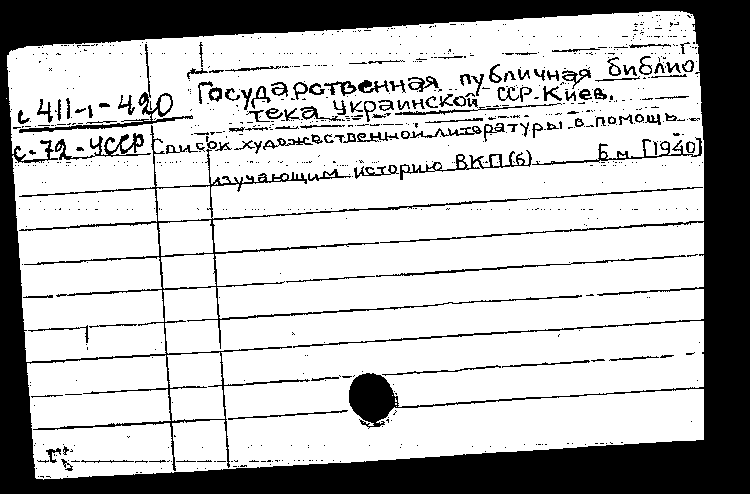 Государственная публичная библио
с 411-1-420
тека украинской ССР-Киев.
с-72-УССР Список художественной литературы в помощь
изучающим историю ВКП(б). Б м [1940]